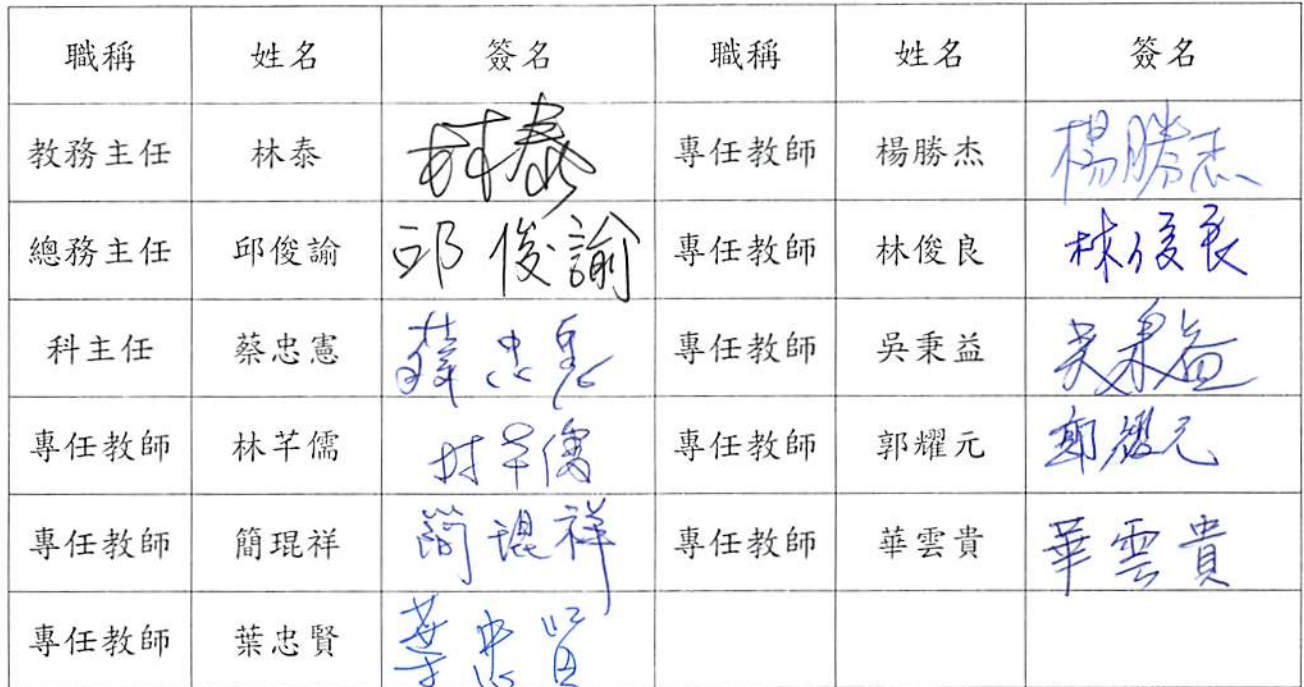 職稱 姓名 簽名 職稱 姓名 簽名
教務主任 林泰 林泰 專任教師 楊勝杰 楊勝杰
總務主任 邱俊諭 邱俊諭 專任教師 林俊良 林俊良
科主任 蔡忠憲 蔡忠憲 專任教師 吳秉益 吳秉益
專任教師 林芊儒 林芊儒 專任教師 郭耀元 郭耀元
專任教師 簡琨祥 簡琨祥 專任教師 華雲貴 華雲貴
專任教師 葉忠賢 葉忠賢